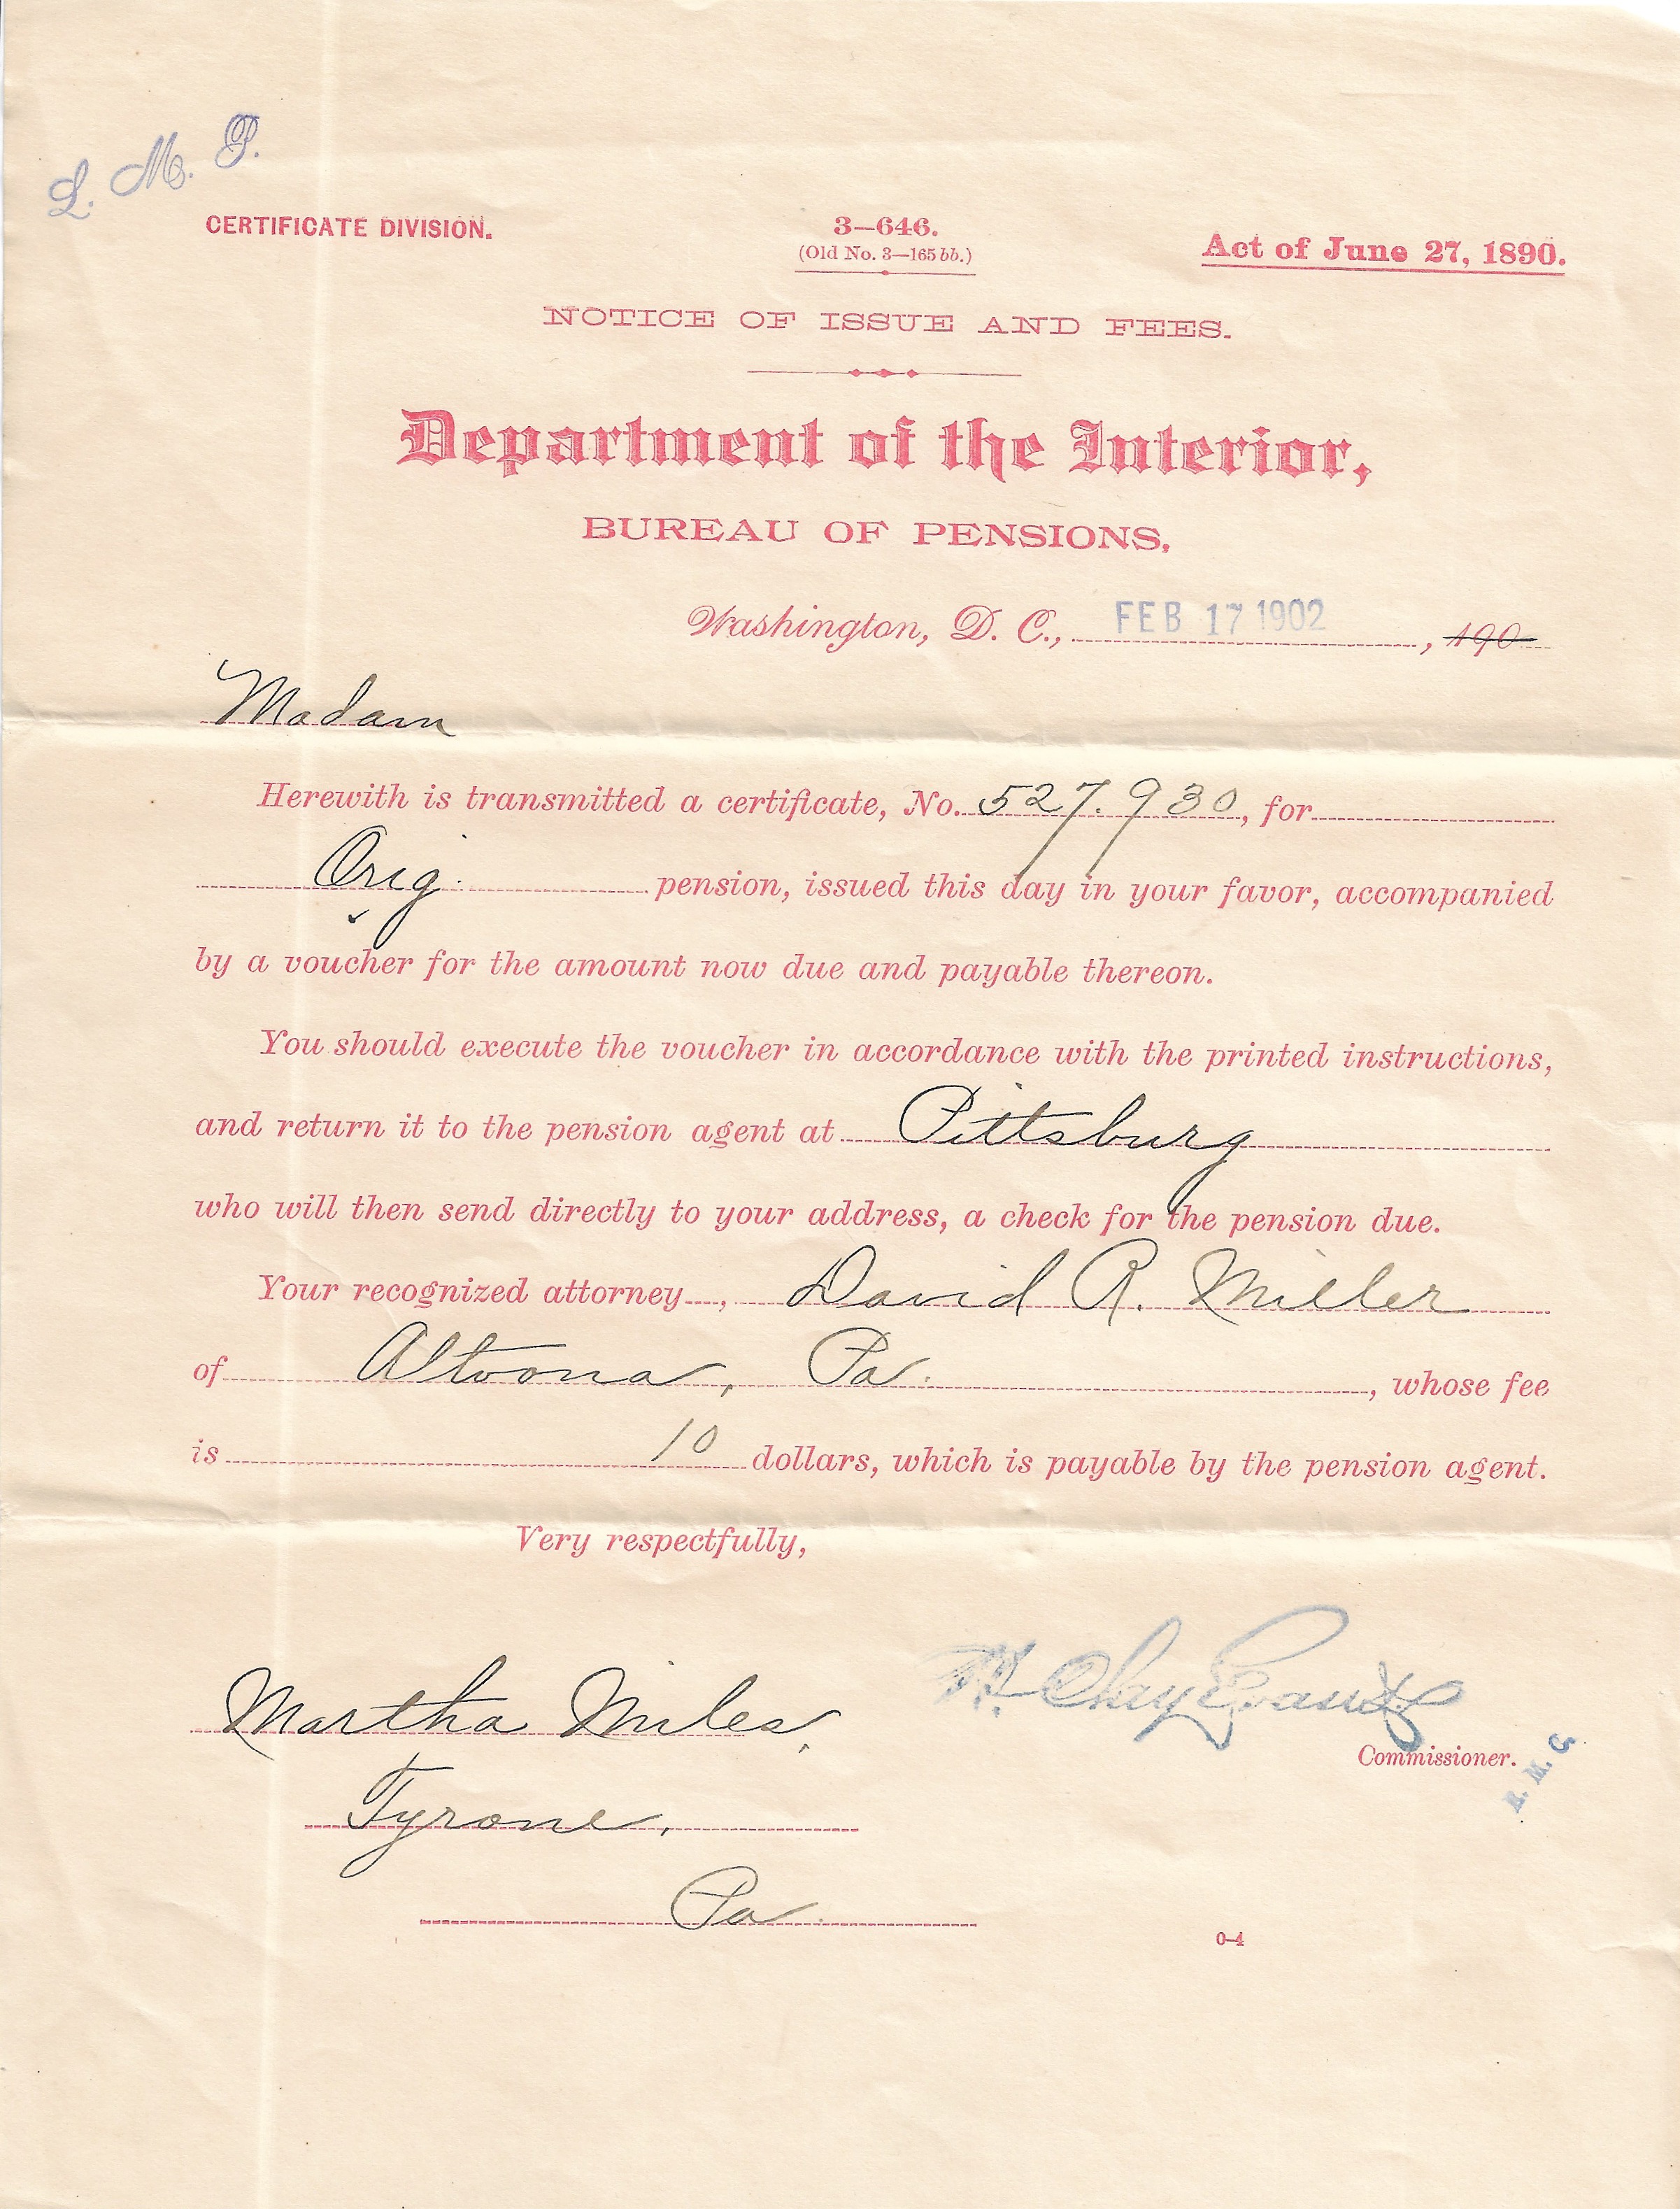 L. M. P.
CERTIFICATE DIVISION.
3—646.
(Old No. 3—165 bb.)
Act of June 27, 1890.
NOTICE OF ISSUE AND FEES.
Department of the Interior,
BUREAU OF PENSIONS,
Washington, D. C., FEB 17 1902, 190
Madam
Herewith is transmitted a certificate, No. 527.930, for
Orig. pension, issued this day in your favor, accompanied
by a voucher for the amount now due and payable thereon.
You should execute the voucher in accordance with the printed instructions,
and return it to the pension agent at Pittsburg
who will then send directly to your address, a check for the pension due.
Your recognized attorney , David R. Miller
of Altoona, Pa. , whose fee
is 10 dollars, which is payable by the pension agent.
Very respectfully,
H. Clay Evans
Commissioner.
Martha Miles,
Tyrone,
Pa.
0-4